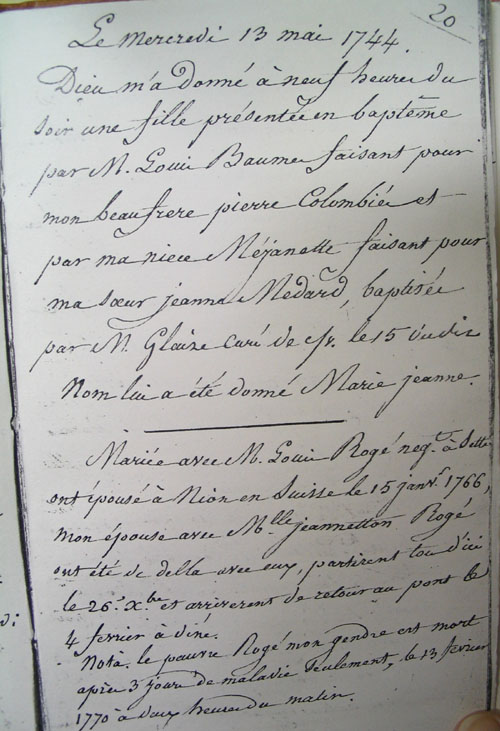 20
Le Mercredi 13 mai 1744.
Dieu m'a donné à neuf heures du
soir une fille présentée en baptême
par M. Louis Baumes faisant pour
mon beaufrere pierre Colombiés et
par ma niece Méjanelle faisant pour
ma sœur jeanne Medard, baptisée
par M. Glaize curé de le 15 dudit
Nom lui a été donné Marie jeanne.
Mariée avec M. Louis Rogé negt. à Sette
ont épousé à Nion en Suisse le 15 janvr. 1766,
mon épouse avec Mlle jeannetton Rogé
ont été de della avec eux, partirent tous d'ici
le 26e. Xbre et arriverent de retour au pont le
4 fevrier à diné.
Nota. le pauvre Rogé mon gendre est mort
après 3 jours de maladie seulement, le 13 fevrier
1770 à deux heures du matin.